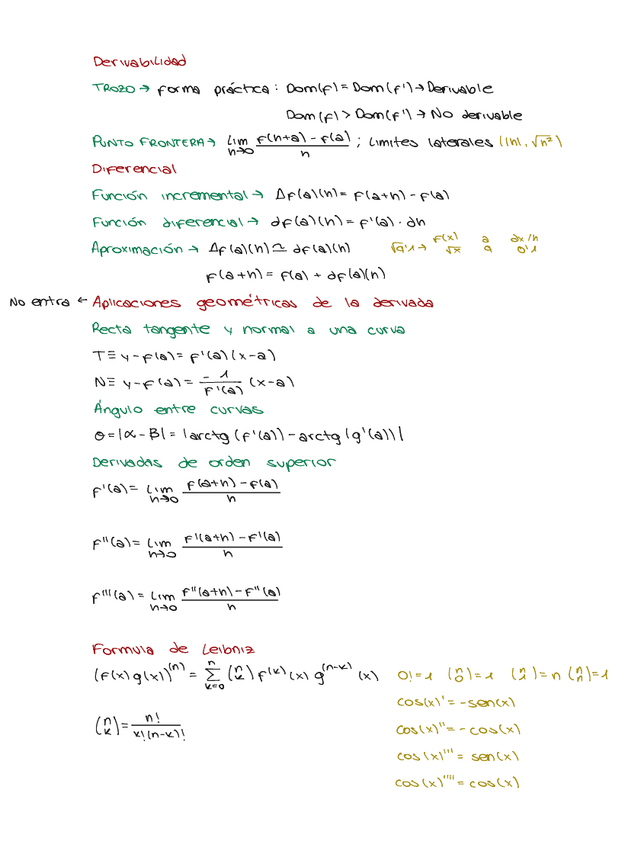 Derivabilidad
TROZO → forma práctica: Dom(f) = Dom(f') → Derivable
Dom(f) > Dom(f') → No derivable
PUNTO FRONTERA → lim h→0 (f(h+a) - f(a))/h ; Limites laterales (|h|, √h²)
Diferencial
Función incremental → Δf(a)(h) = f(a+h) - f(a)
Función diferencial → df(a)(h) = f'(a) · dh
Aproximación → Δf(a)(h) ≃ df(a)(h) √9'1 → f(x) √x a 9 dx/h 0'1
f(a+h) = f(a) + df(a)(h)
No entra ← Aplicaciones geométricas de la derivada
Recta tangente y normal a una curva
T ≡ y - f(a) = f'(a) (x-a)
N ≡ y - f(a) = -1/f'(a) (x-a)
Ángulo entre curvas
θ = |α - β| = |arctg (f'(a)) - arctg (g'(a))|
Derivadas de orden superior
f'(a) = lim h→0 (f(a+h) - f(a))/h
f''(a) = lim h→0 (f'(a+h) - f'(a))/h
f'''(a) = lim h→0 (f''(a+h) - f''(a))/h
Formula de Leibniz
(f(x) g(x))^(n) = Σ k=0 n (n k) f^(k) (x) g^(n-k) (x) 0! = 1 (n 0) = 1 (n 1) = n (n n) = 1
cos(x)' = -sen(x)
(n k) = n!/k!(n-k)! cos(x)'' = -cos(x)
cos(x)''' = sen(x)
cos(x)'''' = cos(x)